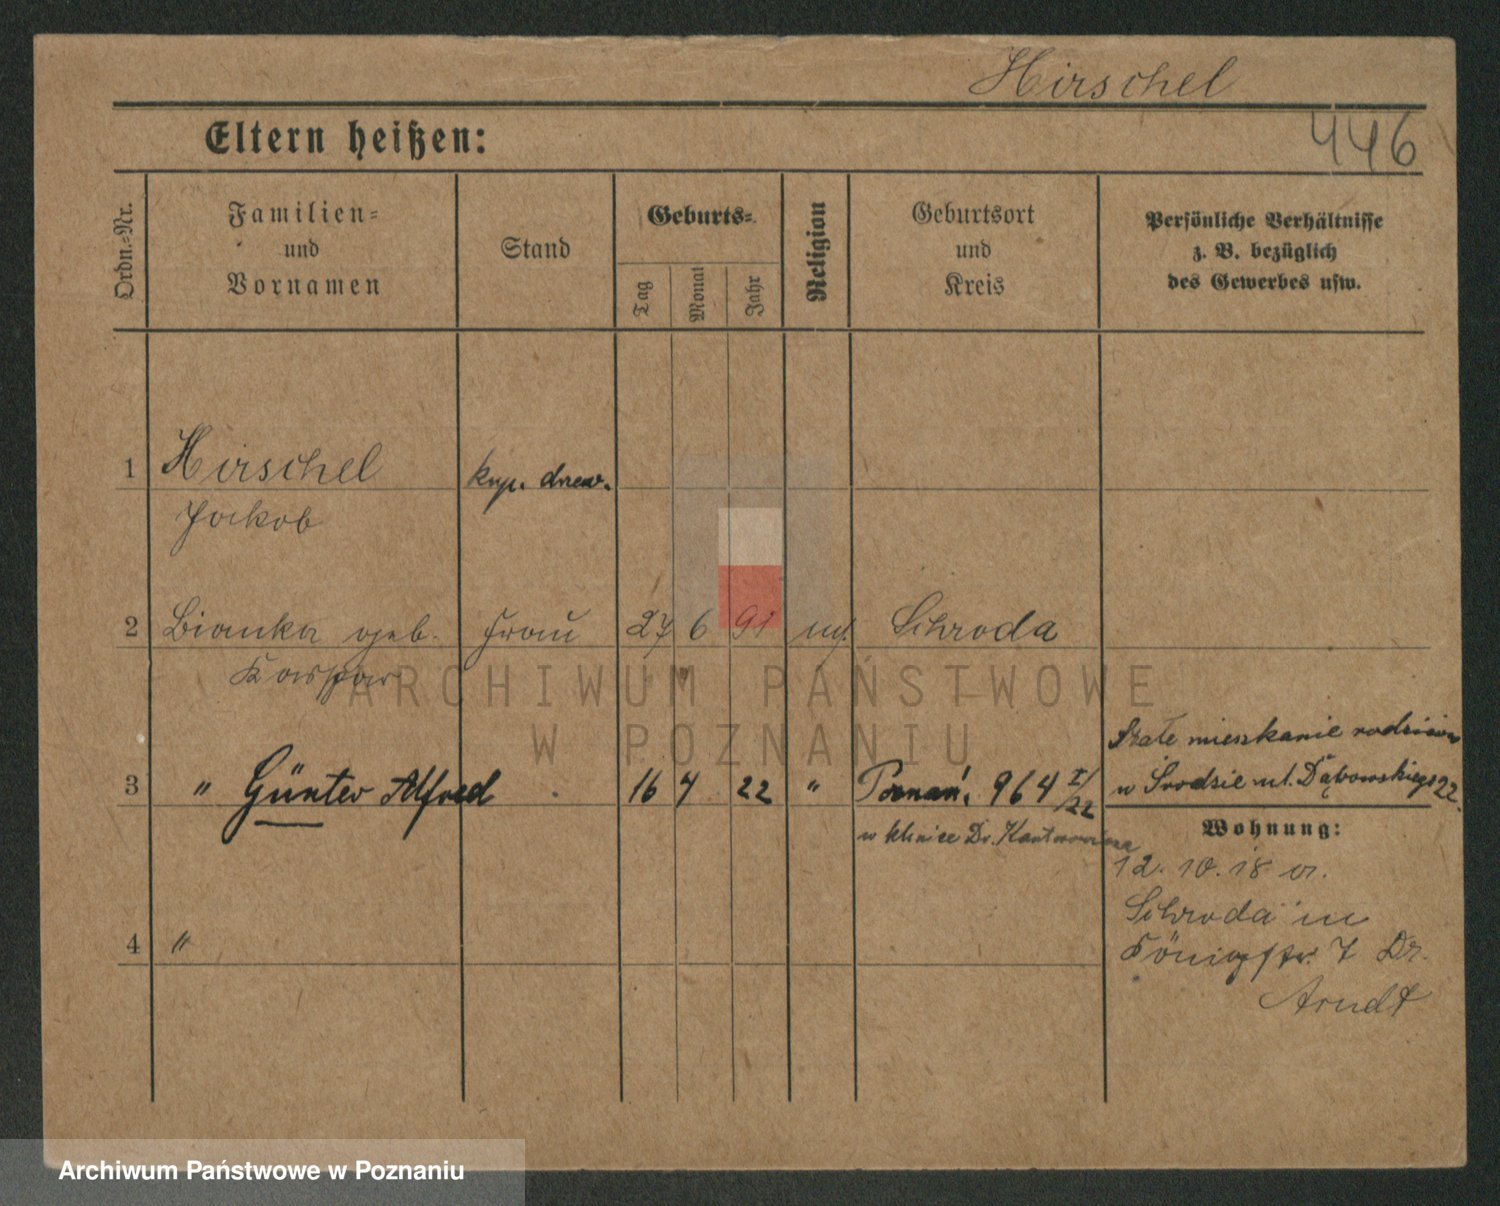 Hirschel
446
Eltern heißen:
Ordn.-Nr.
Familien-
und
Vornamen
Stand
Geburts-
Tag
Monat
Jahr
Religion
Geburtsort
und
Kreis
Persönliche Verhältnisse
z. B. bezüglich
des Gewerbes usw.
1 Hirschel kup. drzew.
Jackob
2 Bianka geb. Frau 27 6 91 Schroda
Kaspar
Stałe mieszkanie rodziców
w Środzie ul. Dąbrowskiego 22.
3 " Günter Alfred 16 7 22 " Poznań. 964 I/22
w klinice Dr. Kantorowicza
Wohnung:
12. 10. 18 a.
Schroda in
4 "
Königstr. 7 Dr.
Arndt
ARCHIWUM PAŃSTWOWE
W POZNANIU
Archiwum Państwowe w Poznaniu